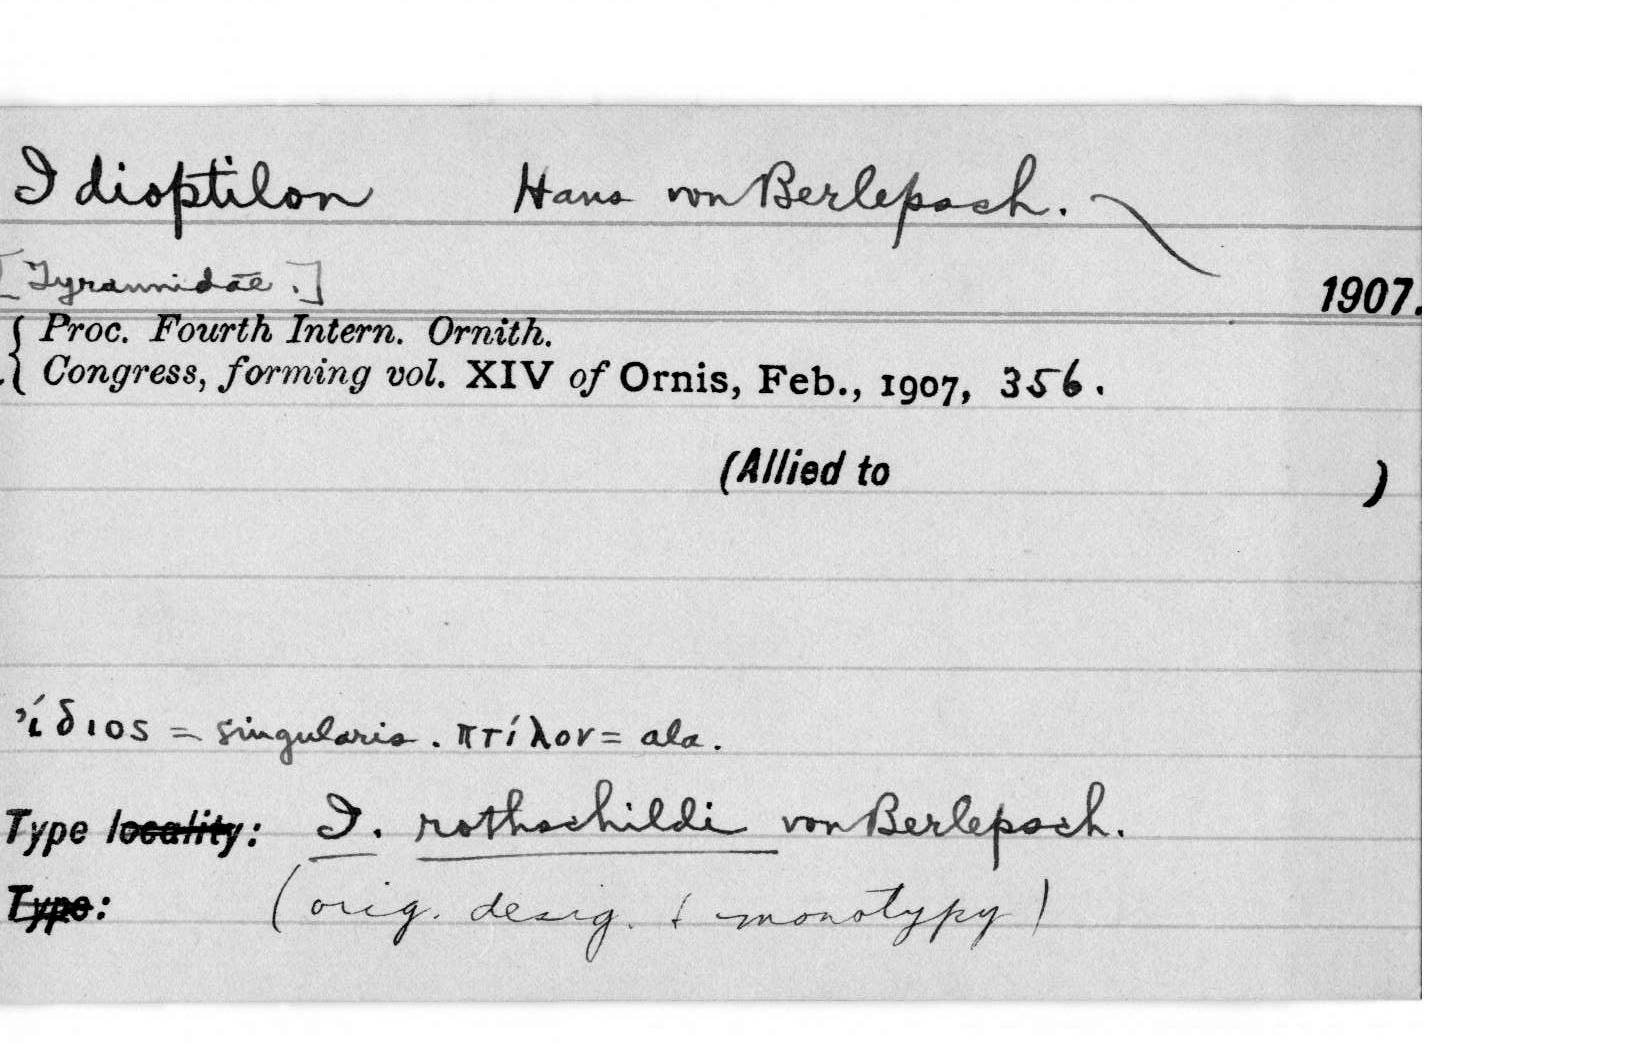 Idioptilon Hans von Berlepsch.
[Tyrannidae.]
1907.
{ Proc. Fourth Intern. Ornith.
Congress, forming vol. XIV of Ornis, Feb., 1907, 356.
(Allied to )
ἴδιος = singularis. πτίλον = ala.
Type locality: I. rothschildi von Berlepsch.
Type: (orig. desig. & monotypy)